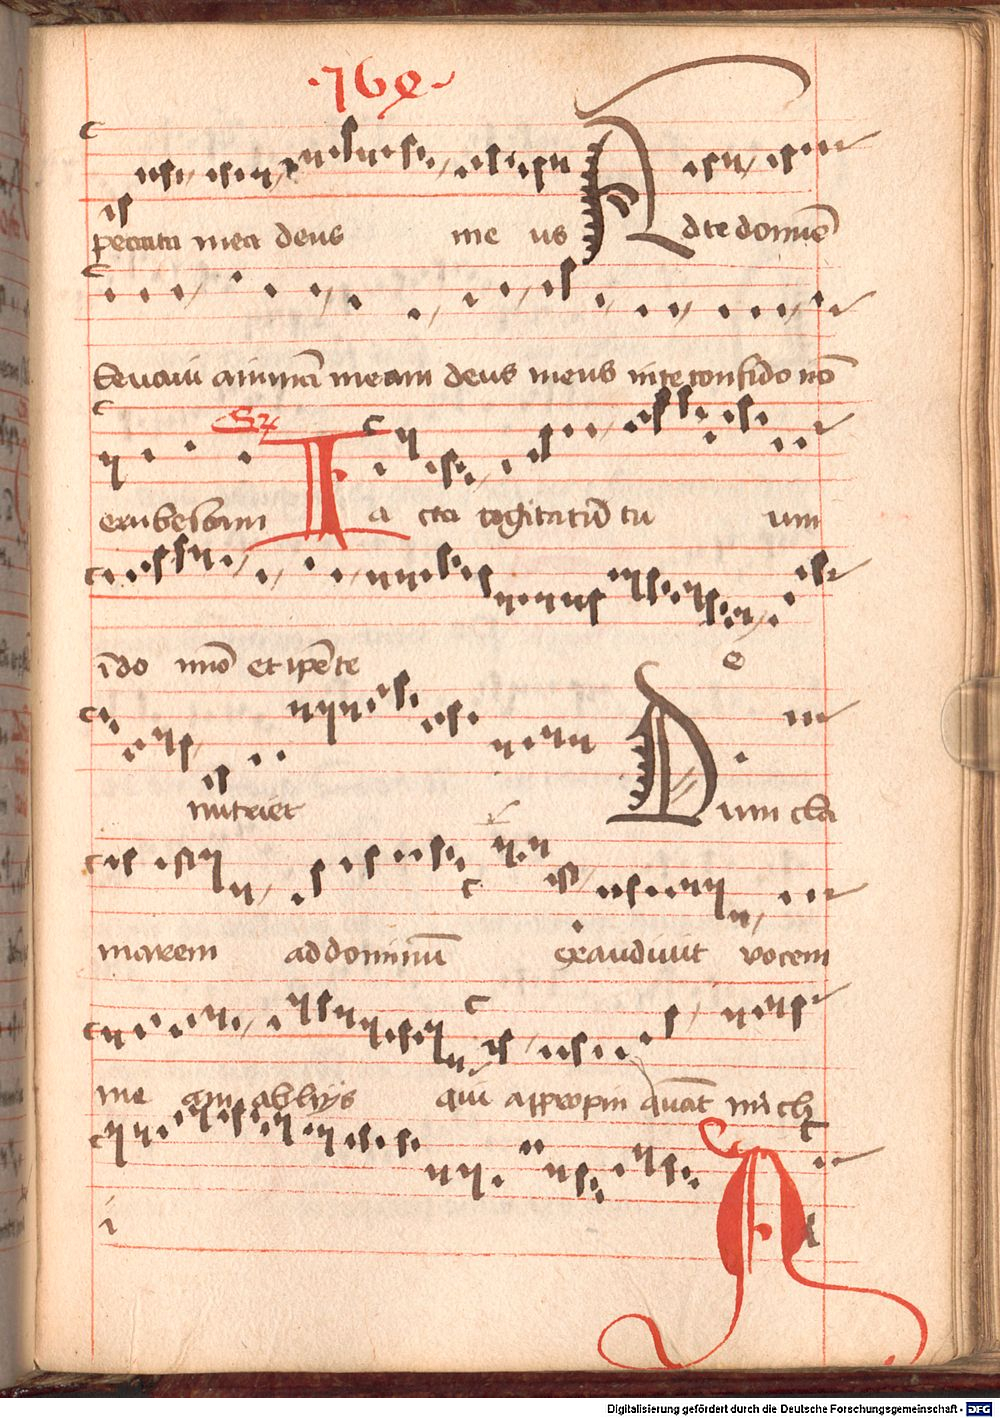 ·762·
peccata mea deus me us Ad te domine
levavi animā meam deus meus in te confido nō
erubescam Gr Ia cta cogitatū tu um
ī do mīo et ip̄e te e
nutriet Dum cla
marem ad dominū exaudivit vocem
me am ab hijs qui appropin quāt mich
i A
Digitalisierung gefördert durch die Deutsche Forschungsgemeinschaft - DFG